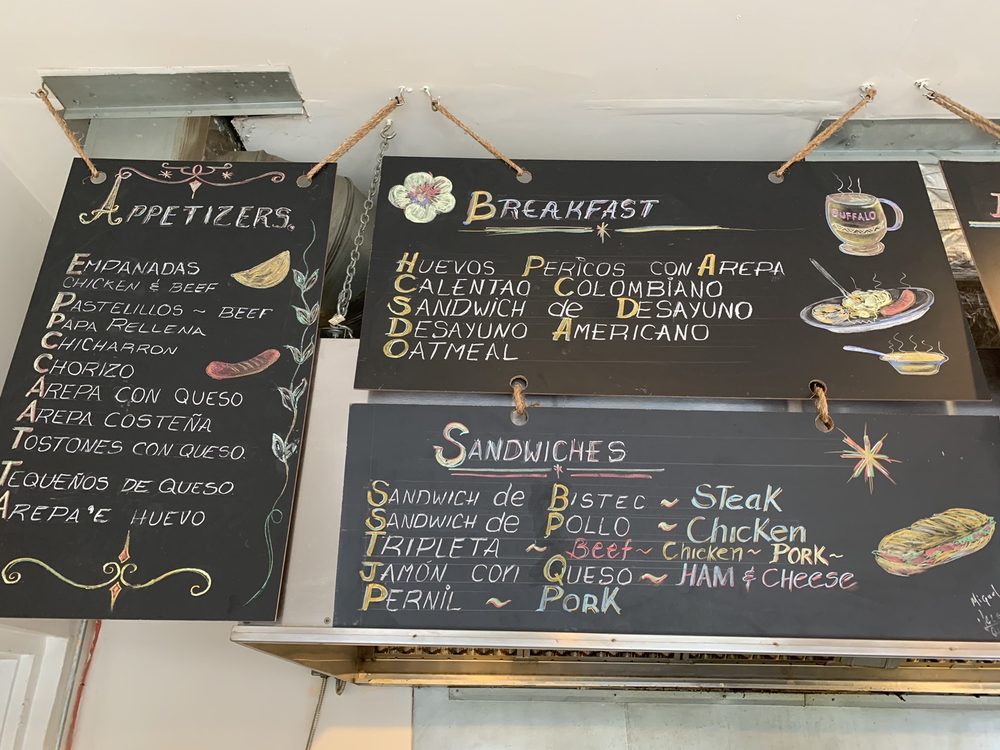 APPETIZERS.
EMPANADAS
CHICKEN & BEEF
PASTELILLOS ~ BEEF
PAPA RELLENA
CHICHARRON
CHORIZO
AREPA CON QUESO
AREPA COSTEÑA
TOSTONES CON QUESO.
TEQUEÑOS DE QUESO
AREPA'E HUEVO
BREAKFAST
HUEVOS PERICOS CON AREPA
CALENTAO COLOMBIANO
SANDWICH de DESAYUNO
DESAYUNO AMERICANO
OATMEAL
BUFFALO
SANDWICHES
SANDWICH de BISTEC ~ STEAK
SANDWICH de POLLO ~ Chicken
TRIPLETA ~ Beef ~ Chicken ~ PORK ~
JAMÓN CON QUESO ~ HAM & CHeese
PERNIL ~ PORK
Miguel